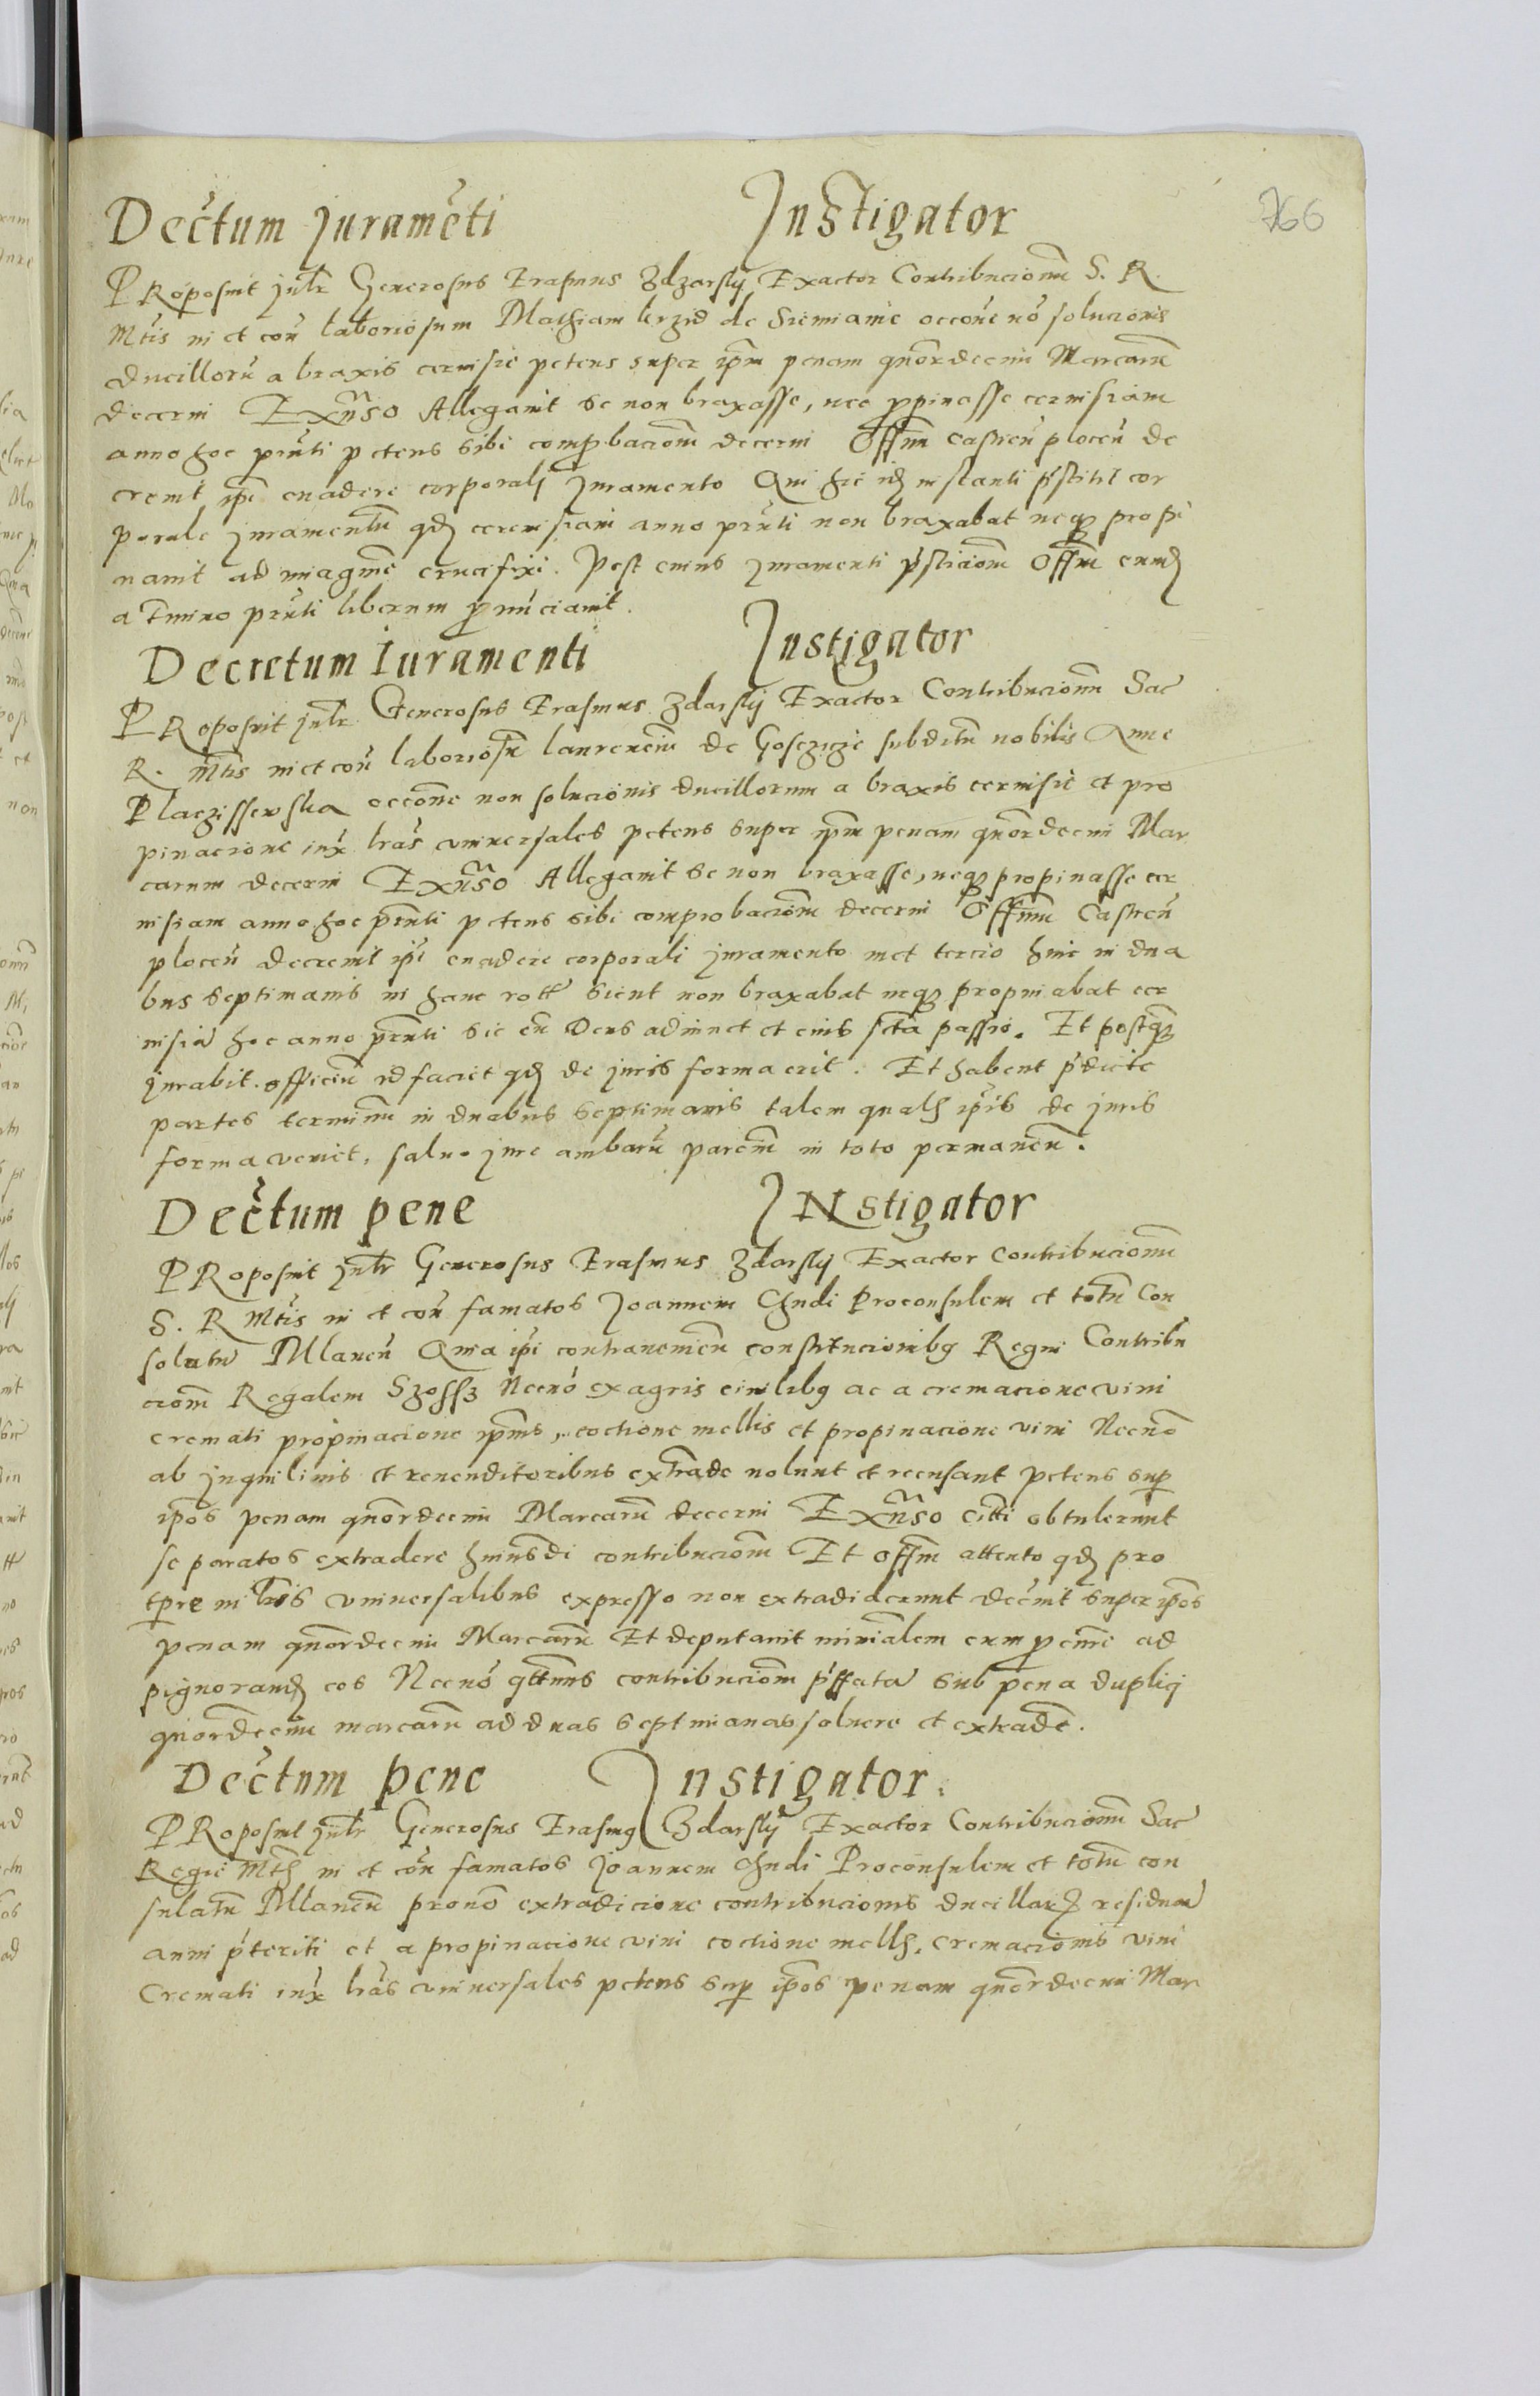 766
Decꝛ̃tum Juramẽti Instigator
PRoposuit Jnstr̃ Generosus Erasmus Zdzarsky Exactor Contribucionũ S. R.
Mtis in et con̄ laboriosum Mathiam de Siemianie occõne nõ solucionis
ducilloru̅ a braxis ceruisie petens super ipm̃ penam quõrdecim Marcarũ
decerni Exãuso Allegauit se non braxasse, nec ꝓpinasse ceruisiam
anno hoc prñti petens sibi comꝓbacionẽ decerni Offm̃ Castreñ plocen̄ de
creuit ipi euadere corporalj juramento Qui hic idem instanti prẽstitit cor
porale juramentũ qđ cereuisiam anno prñti non braxabat neqꝫ propi
nauit ad imaginẽ crucifixi. Post cuius juramenti prẽsticionẽ Offm̃ eundẽ
a tẽmino prñti liberum ꝓnũciauit.
Decretum Iuramenti Instigator
PRoposuit jnstr̃ Generosus Erasmus Zdarsky Exactor Contribucionũ Sac
R. Mtis in et con̄ laboriosũ laurenciũ de Gosczicze subditũ nobilis Anne
Placzissewska occõne non solucionis ducillorum a braxis ceruisie et pro
pinacione iux̃ lrãs vniuersales petens super ipm̃ penam quõrdecim Mar
carum decerni Exãuso Allegauit se non braxasse, neqꝫ propinasse cer
uisiam anno hoc prñti petens sibi comprobacionẽ decerni Offm̃ Castren̄
plocen̄ decreuit ipi euadere corporali juramento met tercio hinc in dua
bus septimanis in hanc rottã sicut non braxabat neqꝫ propinabat cer
uisiã hoc anno prñti sic eũ Deus adiuuet et eius sctã passio. Et postqꝫ
jurabit. officiũ id faciet qđ de juris forma erit. Et habent p̃dicte
partes terminũ in duabus septimanis talem qualẽ ipis de juris
forma veniet, saluo jure ambarũ parciũ in toto permanen̄.
Decꝛ̃tum pene INstigator
PRoposuit jnstr̃ Generosus Erasmus Zdarsky Exactor Contribucionũ
S. R Mtis in et con̄ famatos Joannem Chudi Proconsulem et totũ Con
solatũ Mlaueñ Quia ipi contraueniẽn constitucionibꝰ Regni Contribu
cionẽ Regalem Szossz Necnõ ex agris ciuilibꝰ ac a cremacione vini
cremati propinacione ipius, coctione mellis et propinacione vini Necnõ
ab jnquilinis et reuenditoribus extrade nolunt et recusant petens suꝑ
ipos penam quõrdecim Marcarũ decerni Exãuso Citti obtulerunt
se paratos extradere huiusdi contribucionẽ Et offm̃ attento qđ pro
tꝑre in lris vniuersalibus expresso non extradiderunt decꝛ̃uit super ipos
penam quõrdecim Marcarũ Et deputauit minialem eum ꝓ cuiꝛe ad
pignorandũ eos Necnõ qttnũs contribucionẽ p̃ffatã sub pena duplicj
quõrdecim marcarũ ad duas septimanas soluere et extradẽ.
Decꝛ̃tum pene Instigator.
PRoposuit jnstr̃ Generosus Erasmꝰ Zdarsky Exactor Contribucionũ Sac
Regie Mtis in et con̄ famatos Joannem Chudi Proconsulem et totũ con
sulatũ Mlauen̄ pronõ extradicione contribucionis ducillarꝫ residuã
anni p̃teriti et a propinacione vini coctione mellis, cremacionis vini
Cremati iux̃ lrãs vniuersales petens suꝑ ipos penam quõrdecim Mar